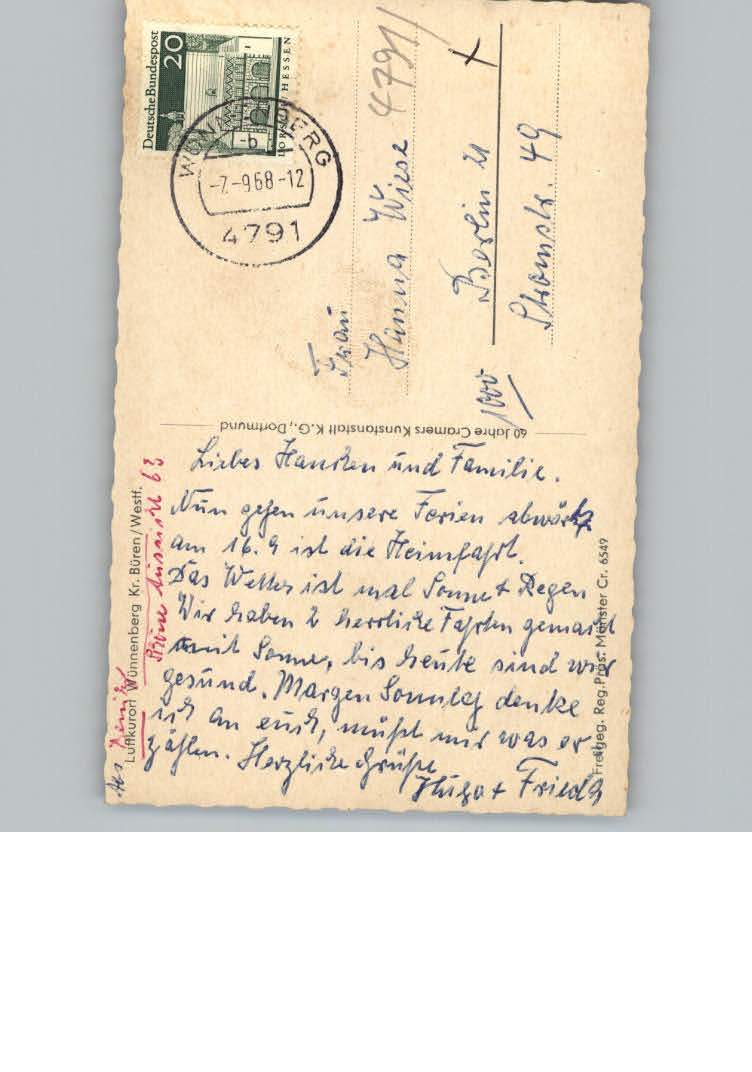 Deutsche Bundespost
20
HESSEN
WÜNNENBERG
-b
-7.-9.68-12
4791
4791/
Frau
Hanna Wiese
1000
Berlin 21
Stromstr. 49
60 Jahre Cramers Kunstanstalt K.G., Dortmund
Luftkurort Wünnenberg Kr. Büren/Westf.
Freigeg. Reg.Präs. Münster Cr. 6549
63
Liebes Hanchen und Familie.
Nun gehen unsere Ferien abwärts
am 16.9 ist die Heimfahrt.
Das Wetter ist mal Sonne + Regen
Wir haben 2 herrliche Fahrten gemacht
mit Sonne, bis heute sind wir
gesund. Morgen Sonntag denke
ich an euch, müßt mir was er
zählen. Herzliche Grüße
Hugo + Frieda